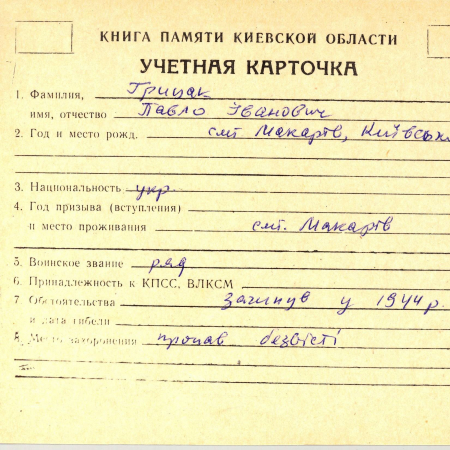 КНИГА ПАМЯТИ КИЕВСКОЙ ОБЛАСТИ
УЧЕТНАЯ КАРТОЧКА
1. Фамилия, Грицак
имя, отчество Павло Іванович
2. Год и место рожд. смт Макарів, Київськ
3. Национальность укр.
4. Год призыва (вступления)
и место проживания смт. Макарів
5. Воинское звание ряд
6. Принадлежность к КПСС, ВЛКСМ
7 Обстоятельства загинув у 1944 р.
и дата гибели
8. Место захоронения пропав безвісті